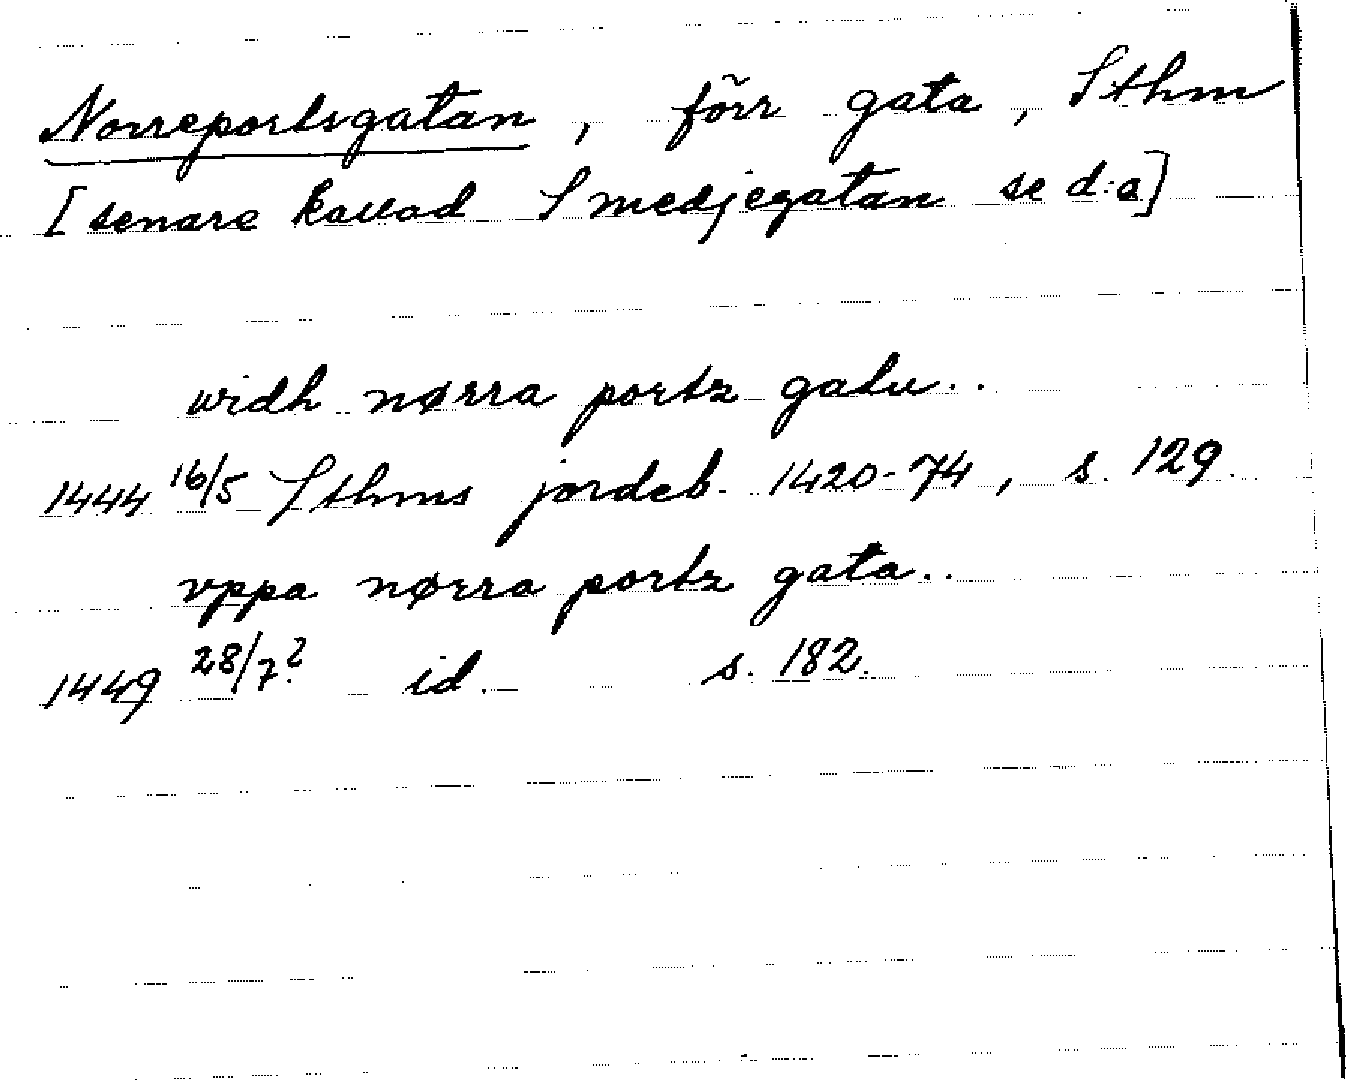 Norreportsgatan, förr gata, Sthm
[senare kallad Smedjegatan se d:a]
widh nørra portz gatu..
1444 16/5 Sthms jordeb. 1420-74, s. 129.
vppa nørra portz gata..
1449 28/7? id. s. 182.